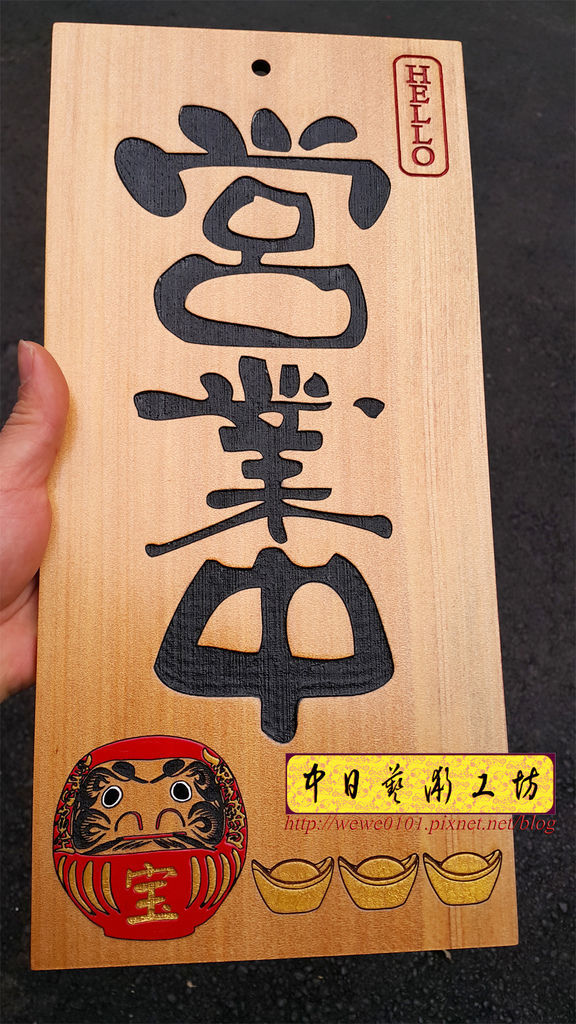 HELLO
営業中
宝
中日藝術工坊
http://wewe0101.pixnet.net/blog